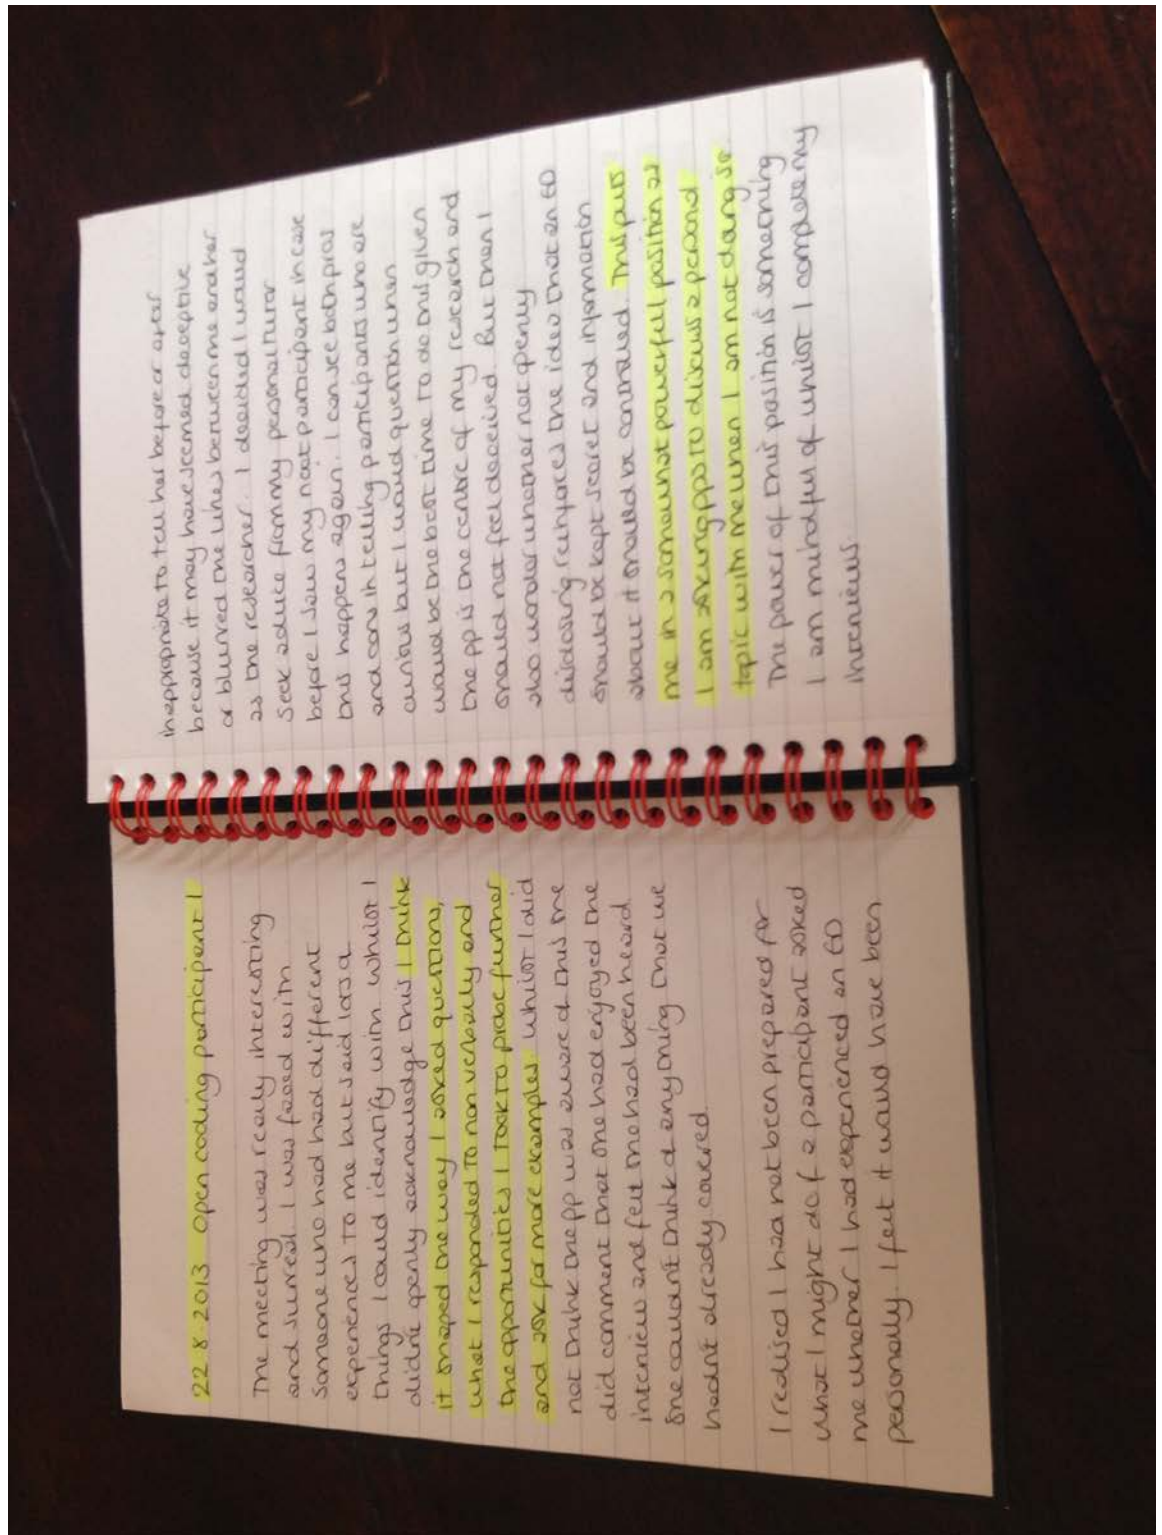 22.8.2013 open coding participant 1
The meeting was really interesting
and surreal. I was faced with
someone who had had different
experiences to me but said lots a
things I could identify with. Whilst I
didn't openly acknowledge this I think
it shaped the way I asked questions,
what I responded to non verbally and
the opportunities I took to probe further
and ask for more examples. Whilst I did
not think the pp was aware of this she
did comment that she had enjoyed the
interview and felt she had been heard
She couldnt think of anything that we
hadn't already covered.
I realised I had not been prepared for
what I might do if a participant asked
me whether I had experienced an ED
personally. I felt it would have been
inappropriate to tell her before or after
because it may have seemed deceptive
or blurred the lines between me and her
as the researcher. I decided I would
seek advice from my personal tutor
before I saw my next participant in case
this happens again. I can see both pros
and cons in telling participants who are
curious but I would question when
would be the best time to do this given
the pp is the centre of my research and
should not feel deceived. But then I
also wonder whether not openly
disclosing reinforces the idea that an ED
should be kept secret and information
about it should be controlled. This puts
me in a somewhat powerful position as
I am asking pps to discuss a personal
topic with me when I am not doing so.
The power of this position is something
I am mindful of whilst I complete my
interviews.